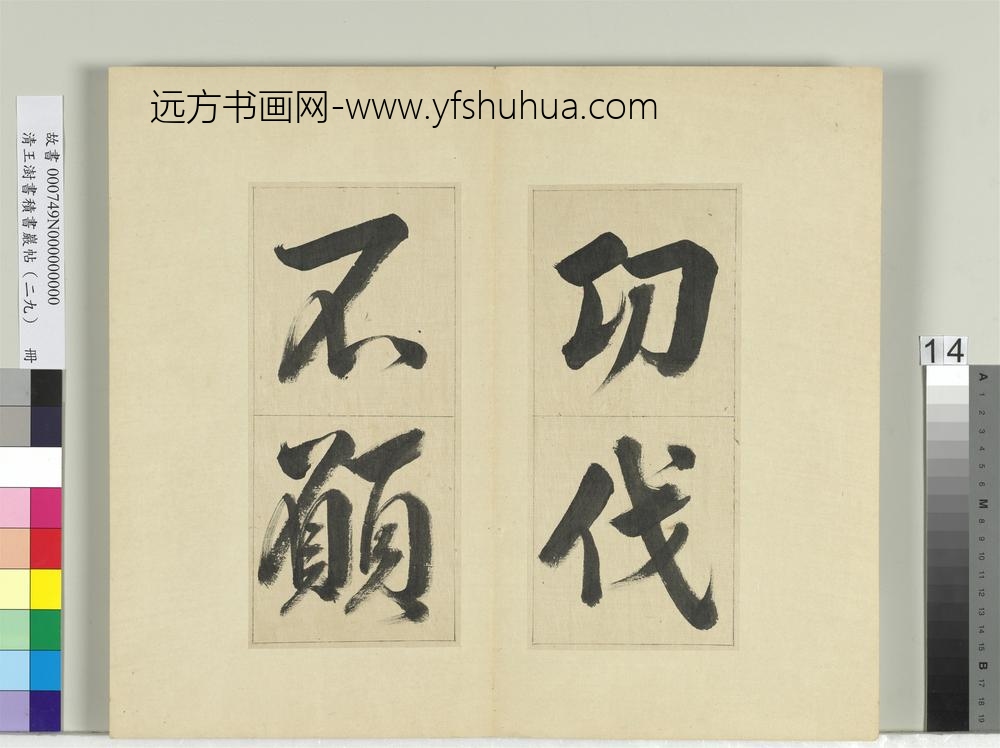 远方书画网-www.yfshuhua.com
功伐
不願
故書 000749N000000000
清王澍書積書巖帖(二九) 冊
14
A 1 2 3 4 5 6 M 8 9 10 11 12 13 14 15 B 17 18 19